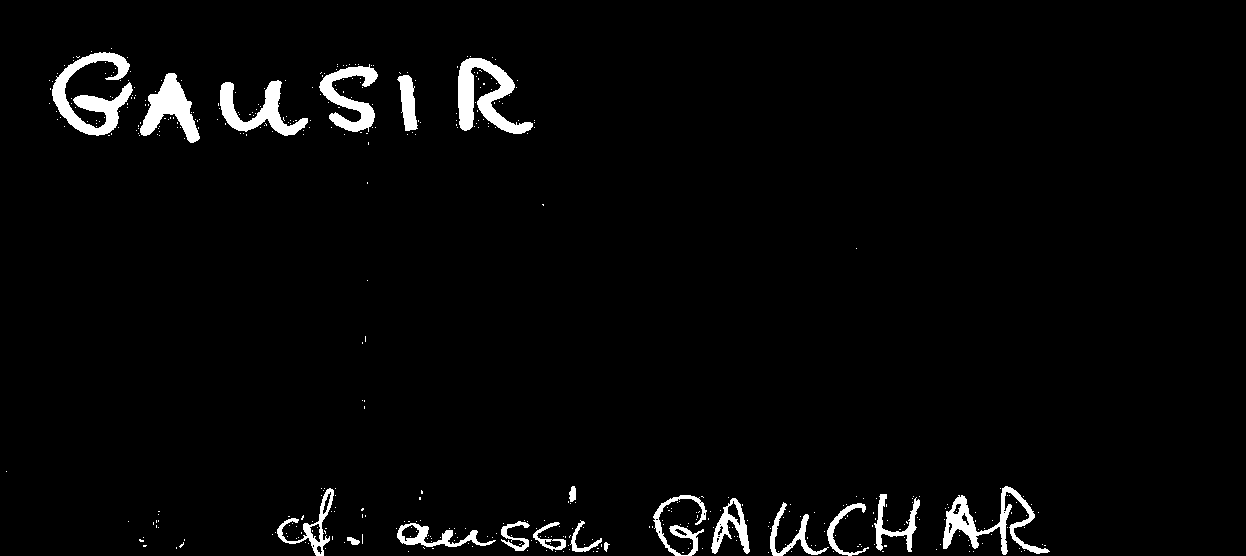 GAUSIR
cf. aussi. GAUCHAR